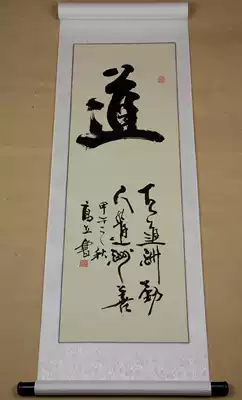 道
天道酬勤
人道酬善
甲午之秋